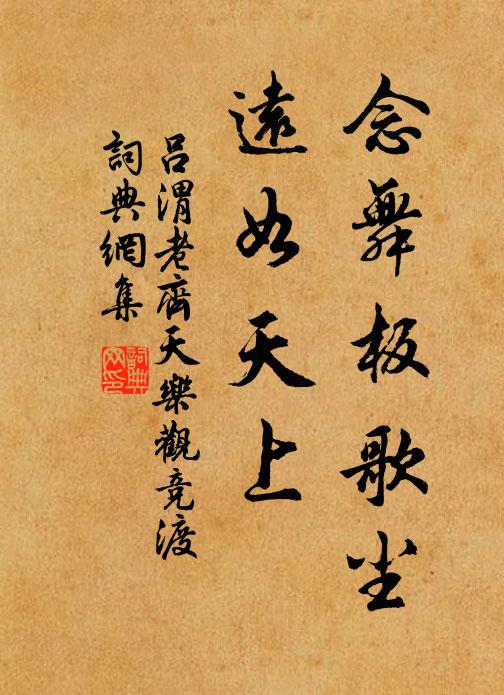 念舞板歌尘
遠如天上
吕渭老齊天樂觀竞渡
詞典網集
詞典
网印